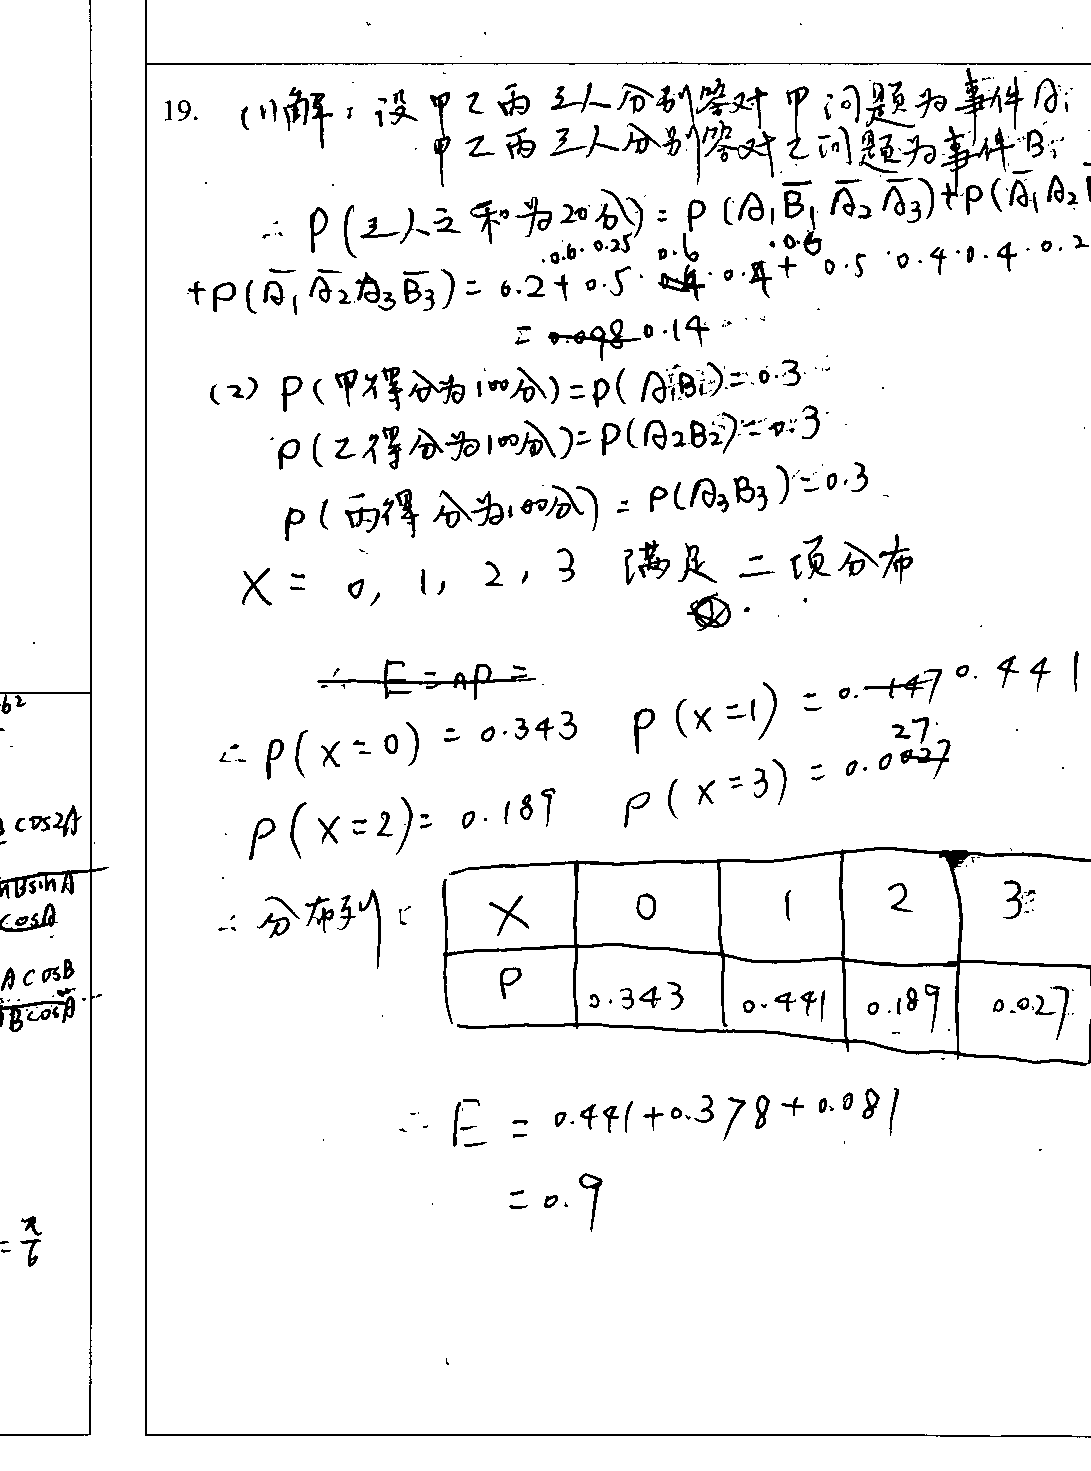 b²
cos2A
nBsinA
cosA
AcosB
BcosA
=π/6
19. (1)解：设甲乙丙三人分别答对甲问题为事件Aᵢ
甲乙丙三人分别答对乙问题为事件Bᵢ
∴P(三人之和为20分)=P(A₁B̅₁A̅₂A̅₃)+P(A̅₁A₂
·0.6·0.25 0.6 ·0.6
+P(A̅₁A̅₂A₃B̅₃)=0.2+0.5··0.4+0.5·0.4·0.4·0.2
=0.098 0.14
(2) P(甲得分为100分)=P(A₁B₁)=0.3
P(乙得分为100分)=P(A₂B₂)=0.3
P(丙得分为100分)=P(A₃B₃)=0.3
X=0, 1, 2, 3 满足二项分布
∴E=np=
∴P(X=0)=0.343 P(X=1)=0.147 0.441
27
P(X=2)=0.189 P(X=3)=0.0027
∴分布列： X 0 1 2 3
P 0.343 0.441 0.189 0.027
∴E=0.441+0.378+0.081
=0.9